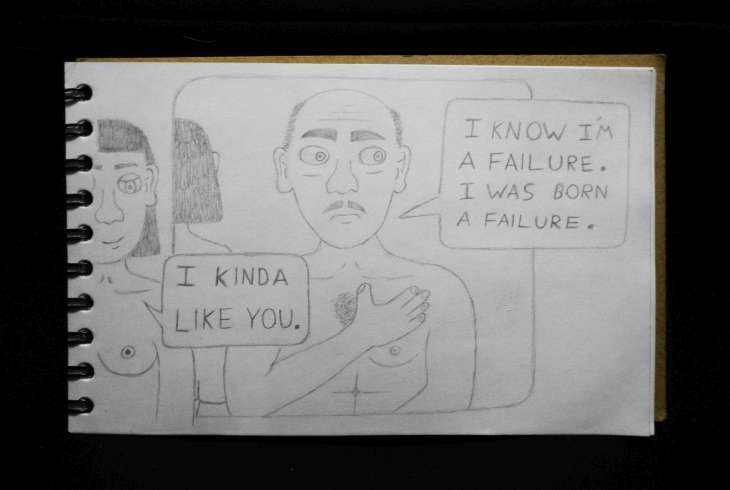 I KNOW I'M
A FAILURE.
I WAS BORN
A FAILURE.
I KINDA
LIKE YOU.